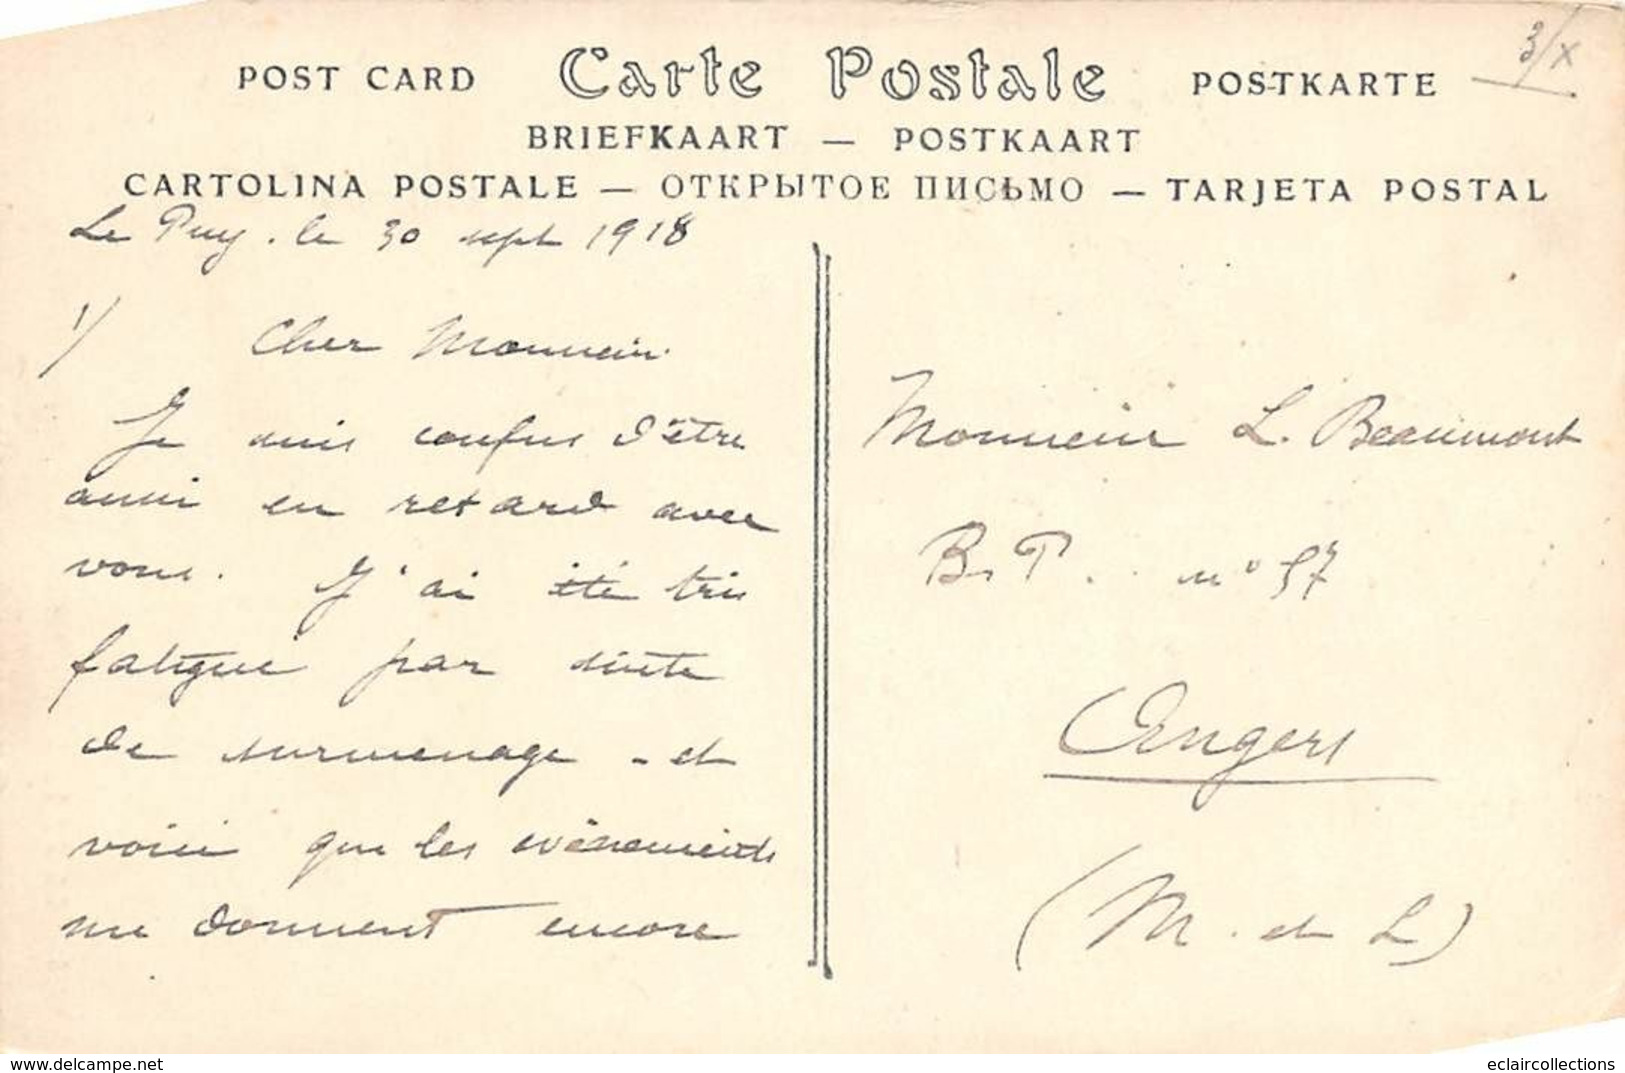 3/X
POST CARD Carte Postale POSTKARTE
BRIEFKAART — POSTKAART
CARTOLINA POSTALE — ОТКРЫТОЕ ПИСЬМО — TARJETA POSTAL
Le Puy. le 30 sept 1918
1/
Cher Monsieur.
Je suis confus d'être
aussi en retard avec
vous. J'ai été très
fatigué par suite
de surmenage - et
voici que les evènements
me donnent encore
Monsieur L. Beaumont
B. P. n° 57
Angers
(M. et L)
delcampe.net
eclaircollections